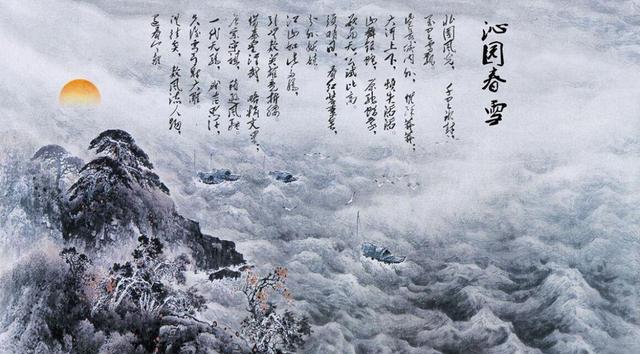 沁园春 雪
北国风光，千里冰封，
万里雪飘。
望长城内外，惟余莽莽，
大河上下，顿失滔滔。
山舞银蛇，原驰蜡象，
欲与天公试比高
须晴日，看红装素裹，
分外妖娆。
江山如此多娇，
引无数英雄竞折腰
惜秦皇汉武，略输文采，
唐宗宋祖，稍逊风骚
一代天骄，成吉思汗，
只识弯弓射大雕
俱往矣，数风流人物
还看今朝